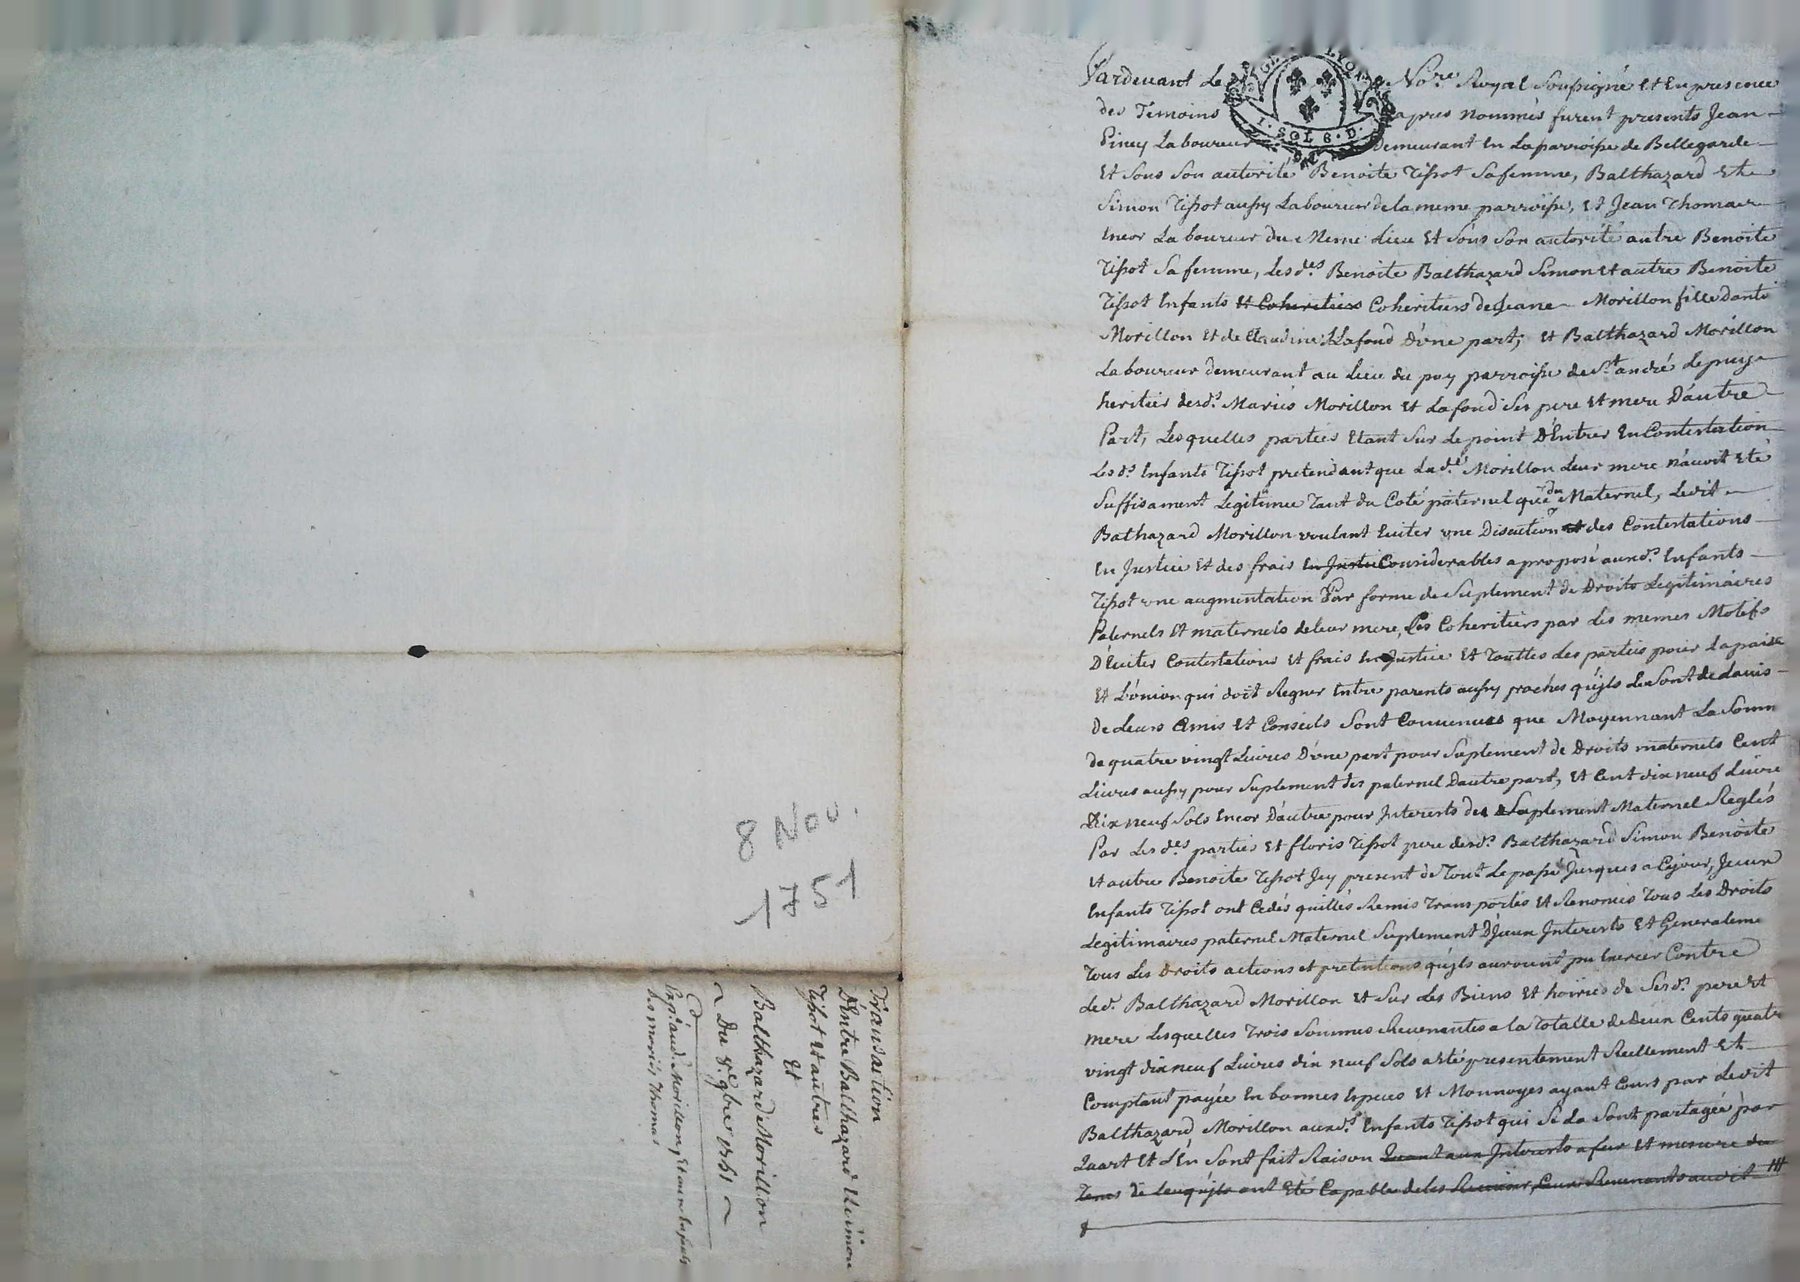 8 Nov.
1751
Transaction
D'Entre Balthazard Et Simon
Tissot Et autres
Et
Balthazard Morillon
Du 8e 9bre 1751
Morillon, Et aux
Les mariés Thomas
Pardevant Le Nore Royal Soussigné Et En presence
des Temoins apres nommés furent presents Jean
Piney Laboureur Demeurant En La parroisse de Bellegarde
Et Sous Son autorité Benoite Tissot Sa femme, Balthazard Et
Simon Tissot aussy Laboureur de la meme parroisse, Et Jean Thomas
Encor Laboureur du Meme Lieu Et Sous Son autorité autre Benoite
Tissot Sa femme, Lesdes Benoite Balthazard Simon Et autre Benoite
Tissot Enfants Et Coheritiers Coheritiers de Jeane Morillon fille dante
Morillon Et de Claudine Lafond D'une part; Et Balthazard Morillon
Laboureur demeurant au Lieu du poy parroisse de St andré Le puy
heritier desds Mariés Morillon Et Lafond Ses pere Et mere D'autre
Part, Lesquelles parties Etant Sur Le point D'Entrer En Contestation
Lesds Enfants Tissot pretendant que Lade Morillon Leur mere n'avoit Eté
Suffisament Legitimée Tant du Coté paternel que du Maternel, Ledit
Bathazard Morillon voulant Eviter une Discution et des Contestations
En Justice Et des frais En Justice Considerables a proposé auxds Enfants
Tissot une augmentation Par forme de Suplement de Droits Legitimaires
Paternels Et maternels de leur mere, Les Coheritiers par Les memes Motifs
D'Eviter Contestations Et frais En Justice Et Touttes Les parties pour La paix
Et L'union qui doit Regner Entre parents aussy proches qu'jls Le Sont de L'avis
De Leurs Amis Et Conseils Sont Convenues que Moyennant La Somm
de quatre vingt Livres D'une part pour Suplement de Droits maternels Cent
Livres aussy pour Suplement des paternel D'autre part, Et Cent dix neuf Livre
Dix neuf Sols Encor D'autre pour Interests des Suplement Maternel Reglés
Par Lesdes parties Et floris Tissot pere desds Balthazard Simon Benoite
Et autre Benoite Tissot Jcy present de Tout Le passé Jusques a Cejour, Jceux
Enfants Tissot ont Cedés quittés Remis Transportés Et Renoncés Tous Les Droits
Legitimaires paternel Maternel Suplement D'Jceux Interests Et Generaleme
Tous Les Droits actions et pretentions qu'jls auroient pu Exercer Contre
Led. Balthazard Morillon Et Sur Les Biens Et hoiries de Sesds pere Et
mere Lesquelles Trois Sommes Revenantes a la Totalle de Deux Cents quatre
vingt dix neuf Livres dix neuf Sols a Eté presentement Reellement Et
Comptant payée En bonnes Especes Et Monnoyes ayant Cours par Ledit
Balthazard Morillon auxds Enfants Tissot qui Se La Sont partagée par
Quart Et S'En Sont fait Raison Quant aux Interests a fur Et mesure du
Tems de Ceuqujls ont Eté Capable de les Recevoir, Ceux Revenants audit